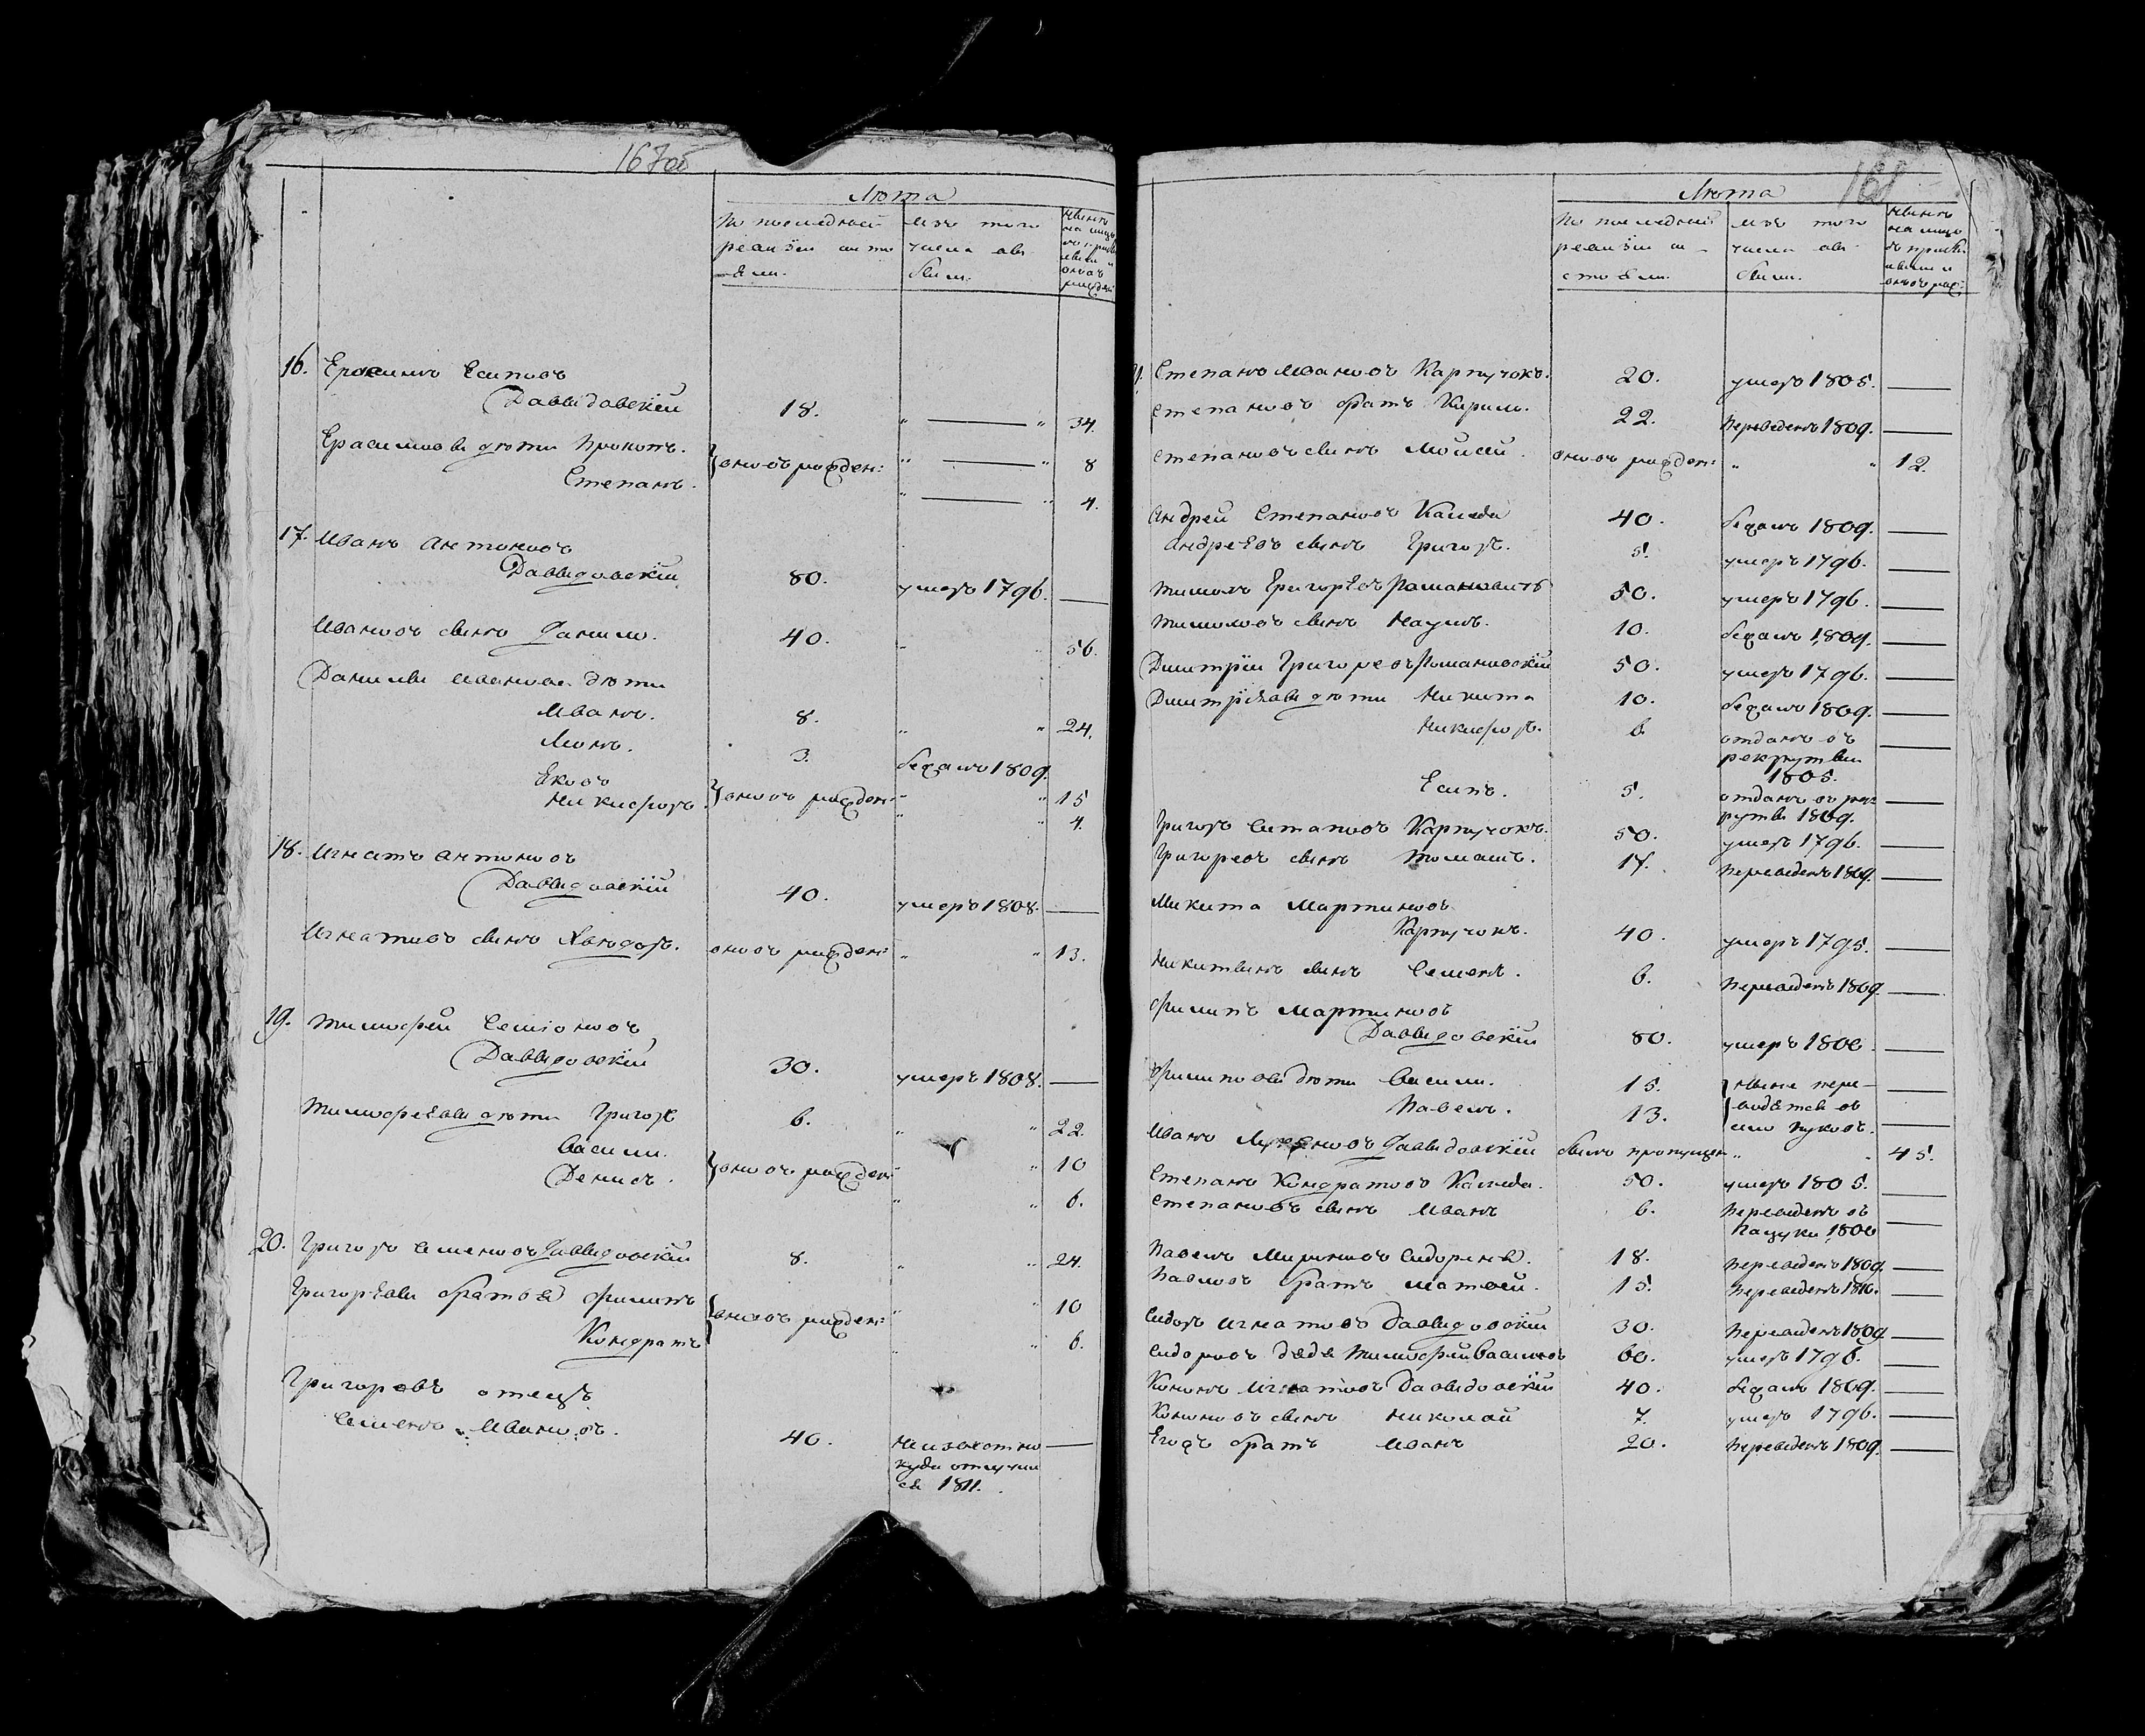 167об
Лета
По последней
ревизіи состо
яли.
Изъ того
числа вы
были.
Ныне
на лицо
16. Ерасимъ Есиповъ
Давыдовскій
18.
" — "
34.
Ерасимовы дети Прокопъ.
вновь рожден:
" — "
8
Степанъ.
" — "
4.
17. Иванъ Антоновъ
Давыдовскій
80.
умеръ 1796. —
Ивановъ сынъ Данило.
40.
" "
56.
Данилы Иванова дети
Иванъ.
8.
" "
24.
Леонъ.
3.
бежалъ 1809.
Яковъ
Никифоръ.
вновь рожден:
" "
15
" "
4.
18. Игнатъ Антоновъ
Давыдовскій
40.
умеръ 1808. —
Игнатовъ сынъ
вновь рожден:
" "
13.
19. Тимофей Семіоновъ
Давыдовскій
30.
умеръ 1808. —
Тимофеевы дети Григоръ
6.
" "
22.
Василь.
" "
10
Денисъ.
вновь рожден:
" "
6.
20. Григоръ Семеновъ Давыдовскій
8.
" "
24.
Григорьевы братья Филипъ
вновь рожден:
" "
10
Кондратъ
" "
6.
Григоревъ отецъ
Семенъ Ивановъ.
40.
Неизвестно —
куда отлучил
ся 1811.
168
Лета
По последней
ревизіи со
стояли.
Изъ того
числа вы
были.
Ныне
на лицо
Степанъ Ивановъ Карпучокъ.
20.
умеръ 1805. —
Степановъ братъ Кирило.
22.
переведенъ 1809. —
Степановъ сынъ Мойсей.
вновь рожден:
" "
12.
Андрей Степановъ Каледа
40.
бежалъ 1809. —
Андреевъ сынъ Григоръ.
5.
умеръ 1796. —
50.
умеръ 1796. —
сынъ Наумъ.
10.
бежалъ 1809. —
Дмитрій Григоревъ Романовскій
50.
умеръ 1796. —
Дмитріевы дети Никита
10.
бежалъ 1809. —
Никифоръ.
6.
отданъ въ —
рекрутыи
1805.
Есипъ.
5.
отданъ въ рек —
руты 1809.
Григоръ Карпучокъ.
50.
умеръ 1796. —
Григоревъ сынъ Томашъ.
17.
переведенъ 1809. —
Микита Мартиновъ
Карпучокъ.
40.
умеръ 1795. —
Никитынъ сынъ Семенъ.
6.
переведенъ 1809. —
Филипъ Мартиновъ
Давыдовскій
80.
умеръ 1800. —
Филиповы дети Василь.
15.
ныне пере- —
Павелъ.
13.
водятся въ
—
Иванъ Давыдовскій
былъ пропущен
" "
45.
Степанъ Кондратовъ Каледа.
50.
умеръ 1805. —
Степановъ сынъ Иванъ
6.
переведенъ въ —
1800
Павелъ Сидореня.
18.
переведенъ 1809. —
Павловъ братъ Матвей.
15.
переведенъ 1810. —
Сидоръ Игнатовъ Давыдовскій
30.
переведенъ 1809 —
Сидоровъ дядя Тимофей Васильевъ
60.
умеръ 1796. —
Кононъ Игнатовъ Давыдовскій
40.
бежалъ 1809. —
Кононовъ сынъ Николай
7.
умеръ 1796. —
Егожъ братъ Иванъ
20.
переведенъ 1809. —